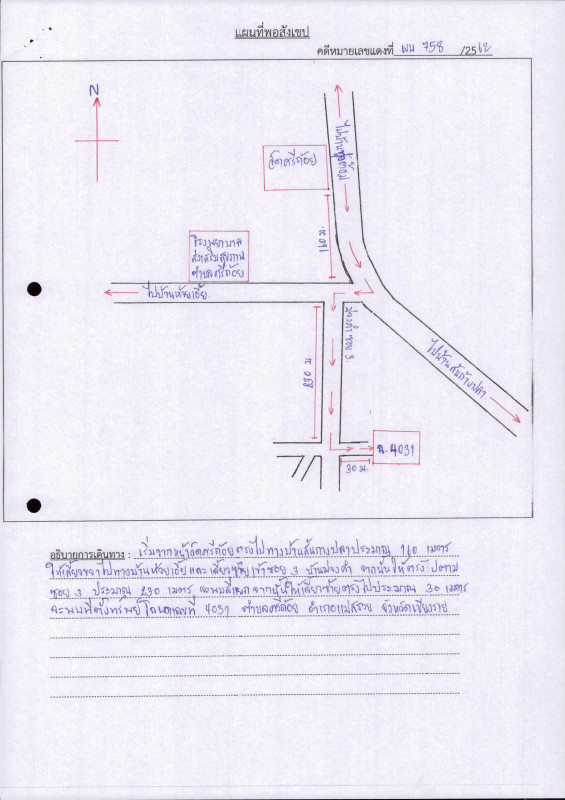 แผนที่พอสังเขป
คดีหมายเลขแดงที่ ผบ 758 /2562
N
ไปบ้านปู่ต้อม
วัดศรีถ้อย
160 ม.
โรงพยาบาล
ส่งเสริมสุขภาพ
ตำบลศรีถ้อย
ไปบ้านห้วยเอี้ยง
ซอย 3
230 ม
ไปบ้านสันก้างปลา
ฉ. 4031
30 ม.
อธิบายการเดินทาง : เริ่มจากหน้าวัดศรีถ้อยตรงไปทางบ้านสันก้างปลาประมาณ 160 เมตร
ให้เลี้ยวขวาไปทางบ้านห้วยเอี้ยงและเลี้ยวซ้ายเข้าซอย 3 จากนั้นให้ตรงไปตาม
ซอย 3 ประมาณ 230 เมตร จะพบสี่แยก จากนั้นให้เลี้ยวซ้ายตรงไปประมาณ 30 เมตร
จะพบที่ตั้งทรัพย์โฉนดเลขที่ 4031 ตำบลศรีถ้อย อำเภอแม่สรวย จังหวัดเชียงราย